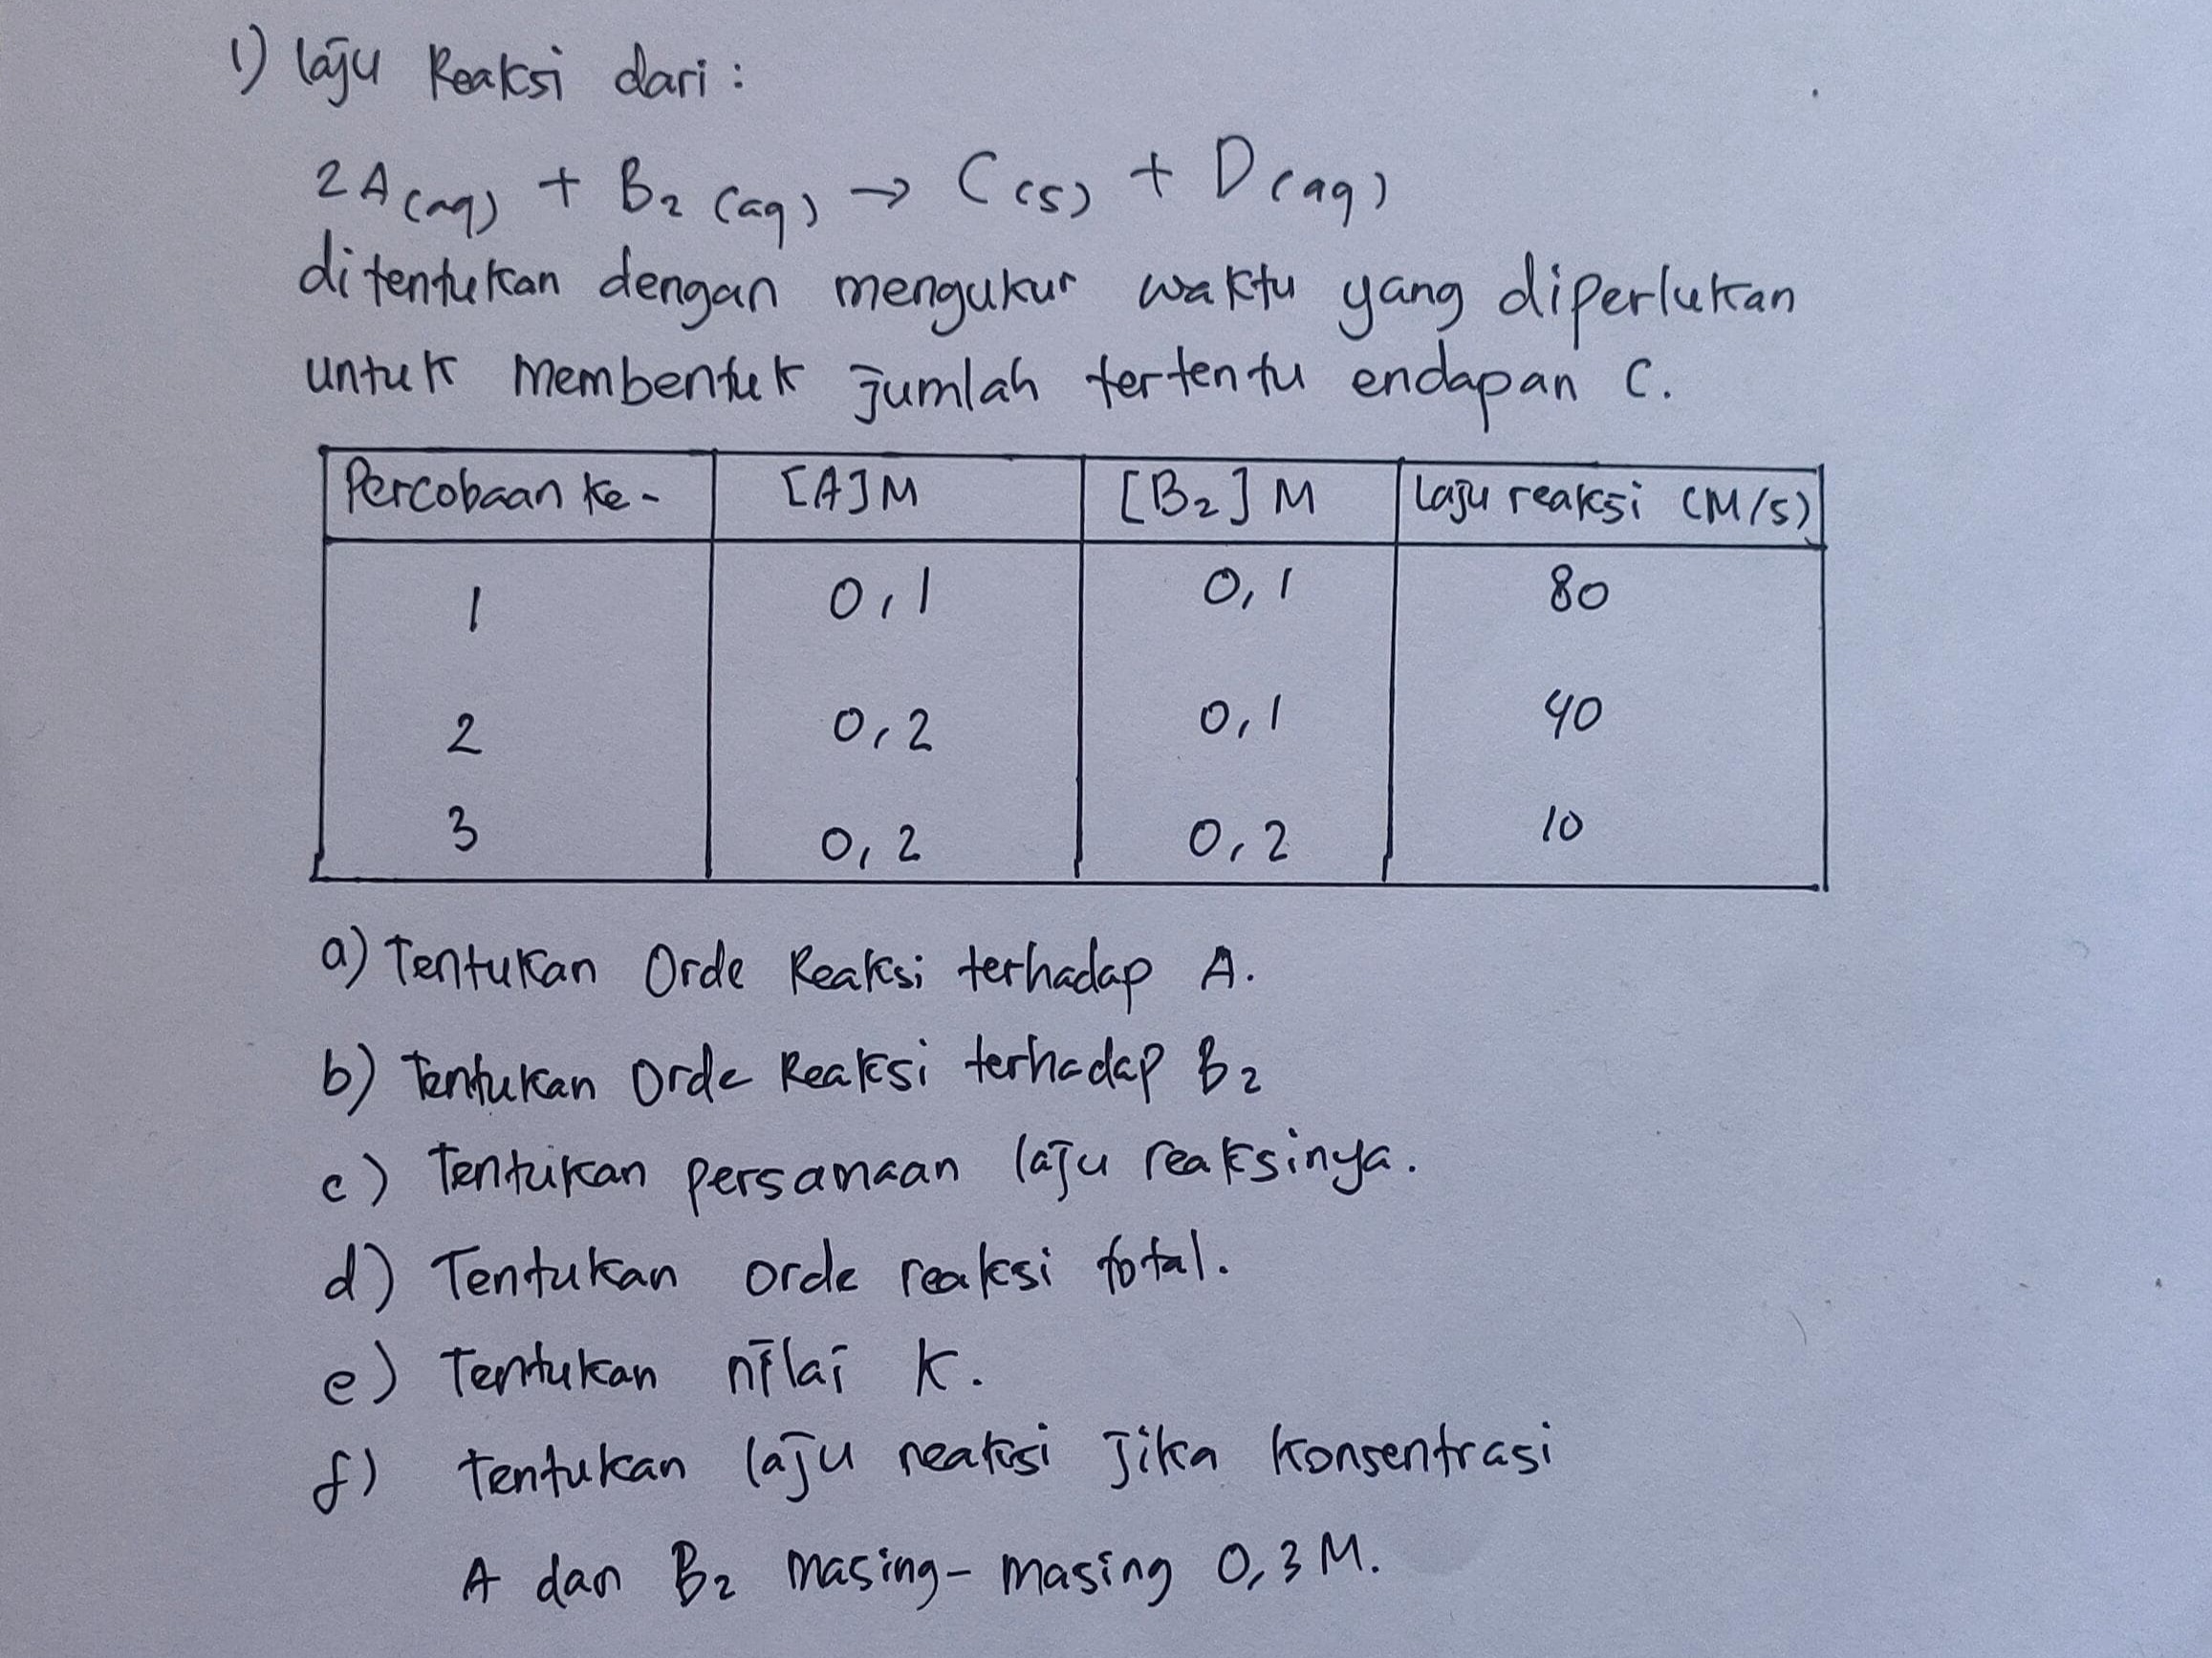 1) Laju Reaksi dari :
2A(aq) + B₂(aq) → C(s) + D(aq)
ditentukan dengan mengukur waktu yang diperlukan
untuk membentuk jumlah tertentu endapan C.
Percobaan ke- [A] M [B₂] M Laju reaksi (M/s)
1 0,1 0,1 80
2 0,2 0,1 40
3 0,2 0,2 10
a) Tentukan Orde Reaksi terhadap A.
b) Tentukan Orde Reaksi terhadap B₂
c) Tentukan persamaan laju reaksinya.
d) Tentukan orde reaksi total.
e) Tentukan nilai K.
f) tentukan laju reaksi jika konsentrasi
A dan B₂ masing-masing 0,3 M.